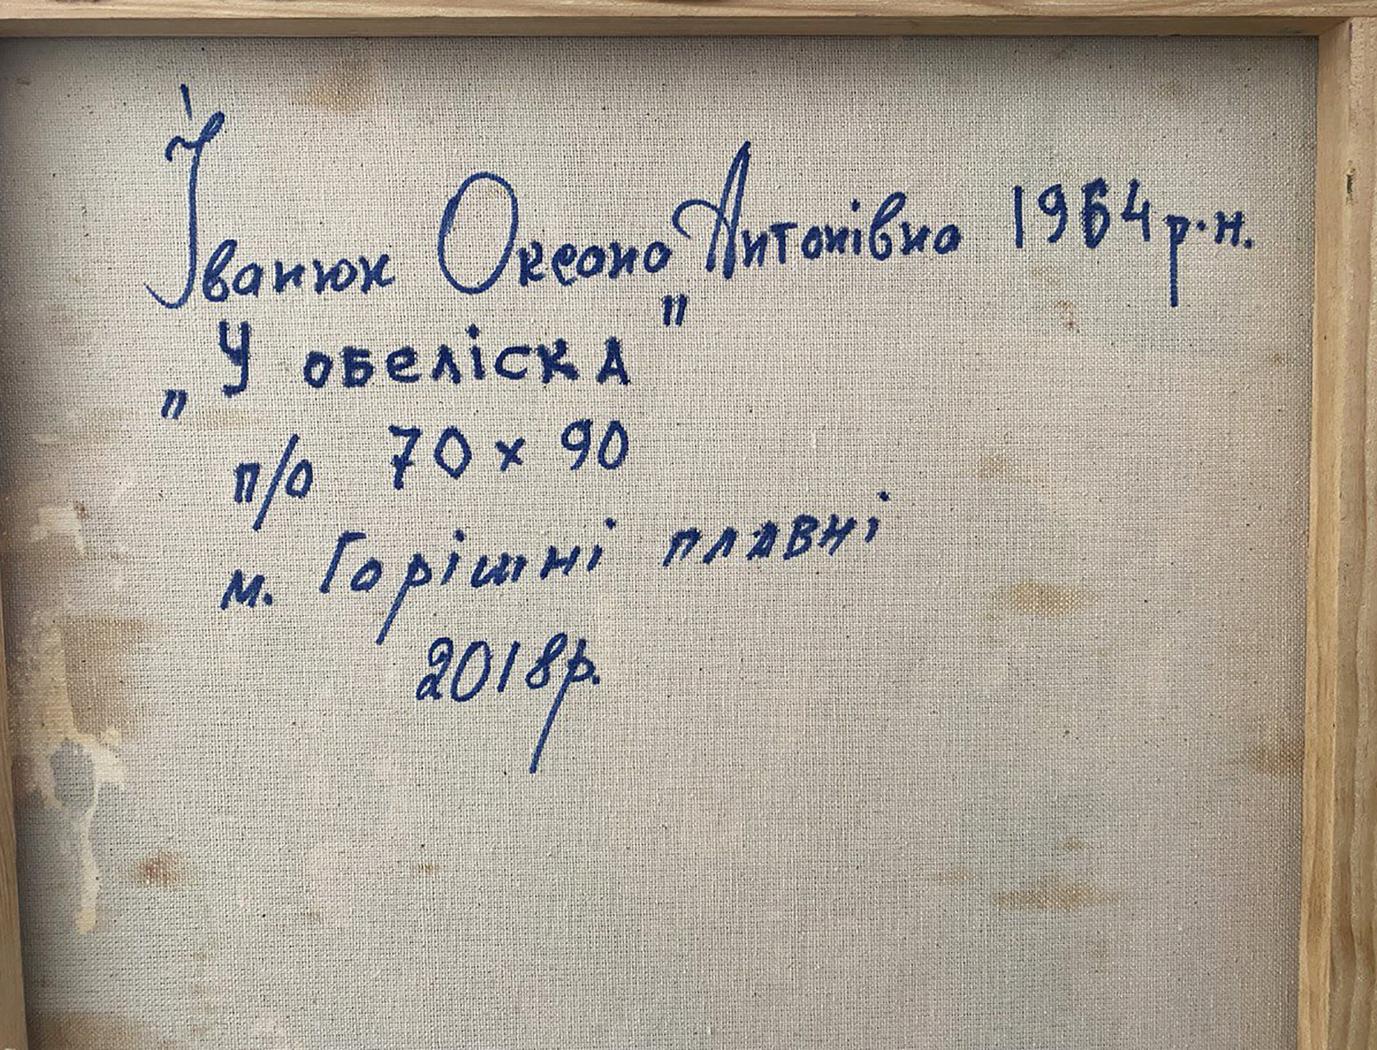 Іванюк Оксана Антонівна 1964 р.н.
„У обеліскА"
п/о 70 х 90
м. Горішні плавні
2018р.